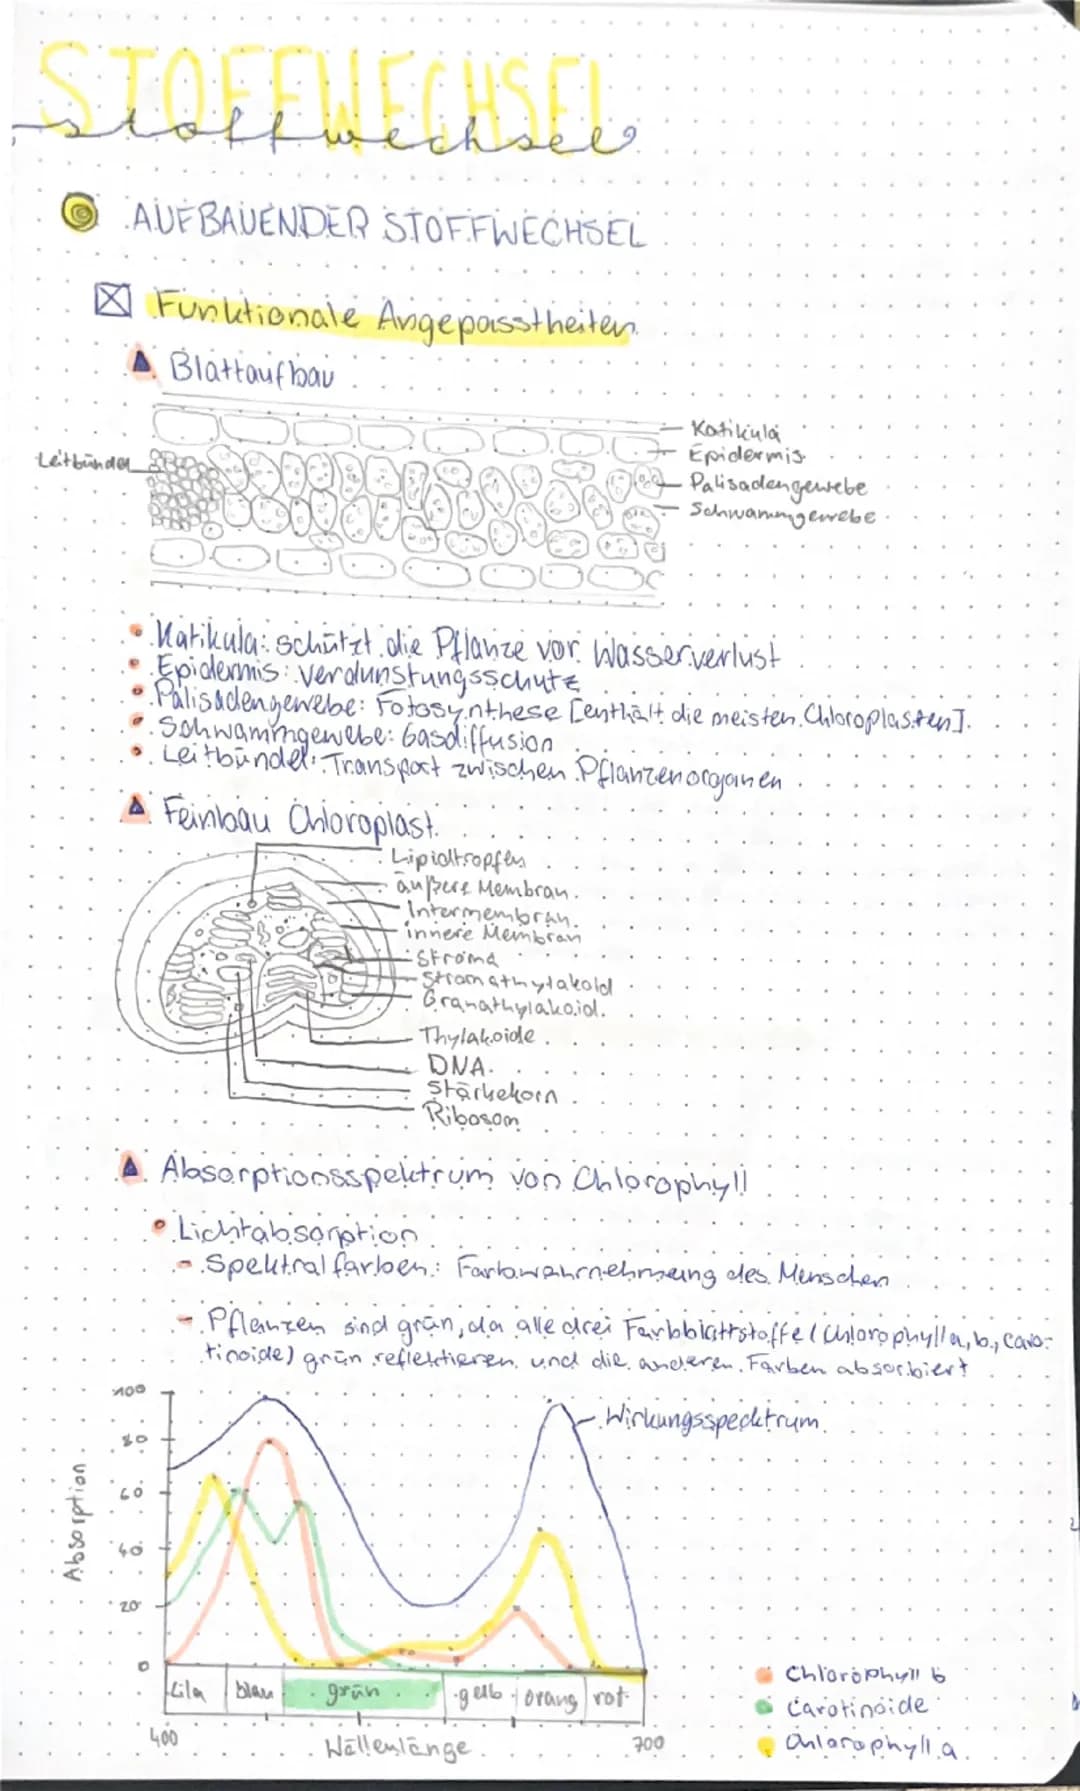 STOFFWECHSEL
stoffwechsel
AUFBAUENDER STOFFWECHSEL
Funktionale Angepasstheiten
Blattaufbau
Leitbündel
Katikula
Epidermis
Palisadengewebe
Schwammgewebe
Katikula: schützt die Pflanze vor Wasserverlust
Epidermis: Verdunstungsschutz
Palisadengewebe: Fotosynthese [enthält die meisten Chloroplasten]
Schwammgewebe: Gasdiffusion
Leitbündel: Transport zwischen Pflanzenorganen
Feinbau Chloroplast
Lipidtropfen
äußere Membran
Intermembran.
innere Membran
Stroma
Stromathylakoid
Granathylakoid
Thylakoide
DNA
Stärkekorn
Ribosom
Absorptionsspektrum von Chlorophyll
Lichtabsorption
- Spektralfarben: Farbwahrnehmung des Menschen
- Pflanzen sind grün, da alle drei Farbblattstoffe (Chlorophyll a, b, Caro-
tinoide) grün reflektieren und die anderen Farben absorbiert
Wirkungsspecktrum
Absorption
100
80
60
40
20
0
lila blau grün gelb orang rot
400 Wällenlänge 700
Chlorophyll b
Carotinoide
Chlorophyll a